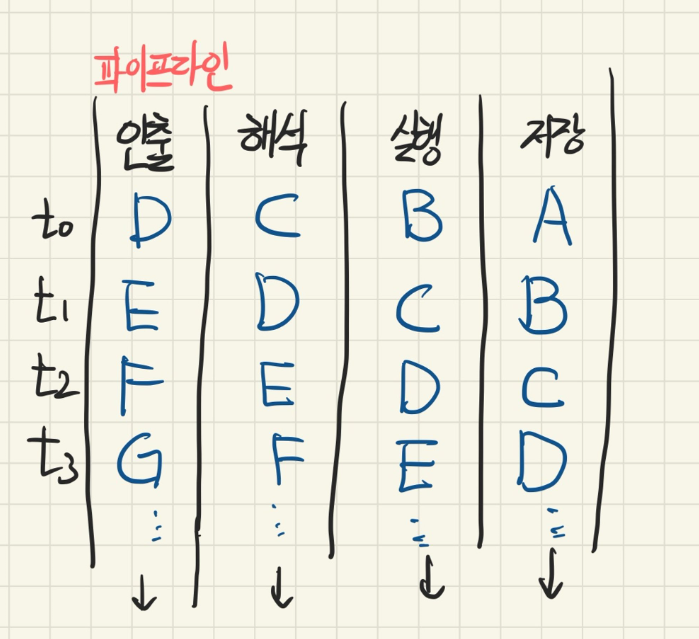 파이프라인
인출 해석 실행 저장
t0 D C B A
t1 E D C B
t2 F E D C
t3 G F E D